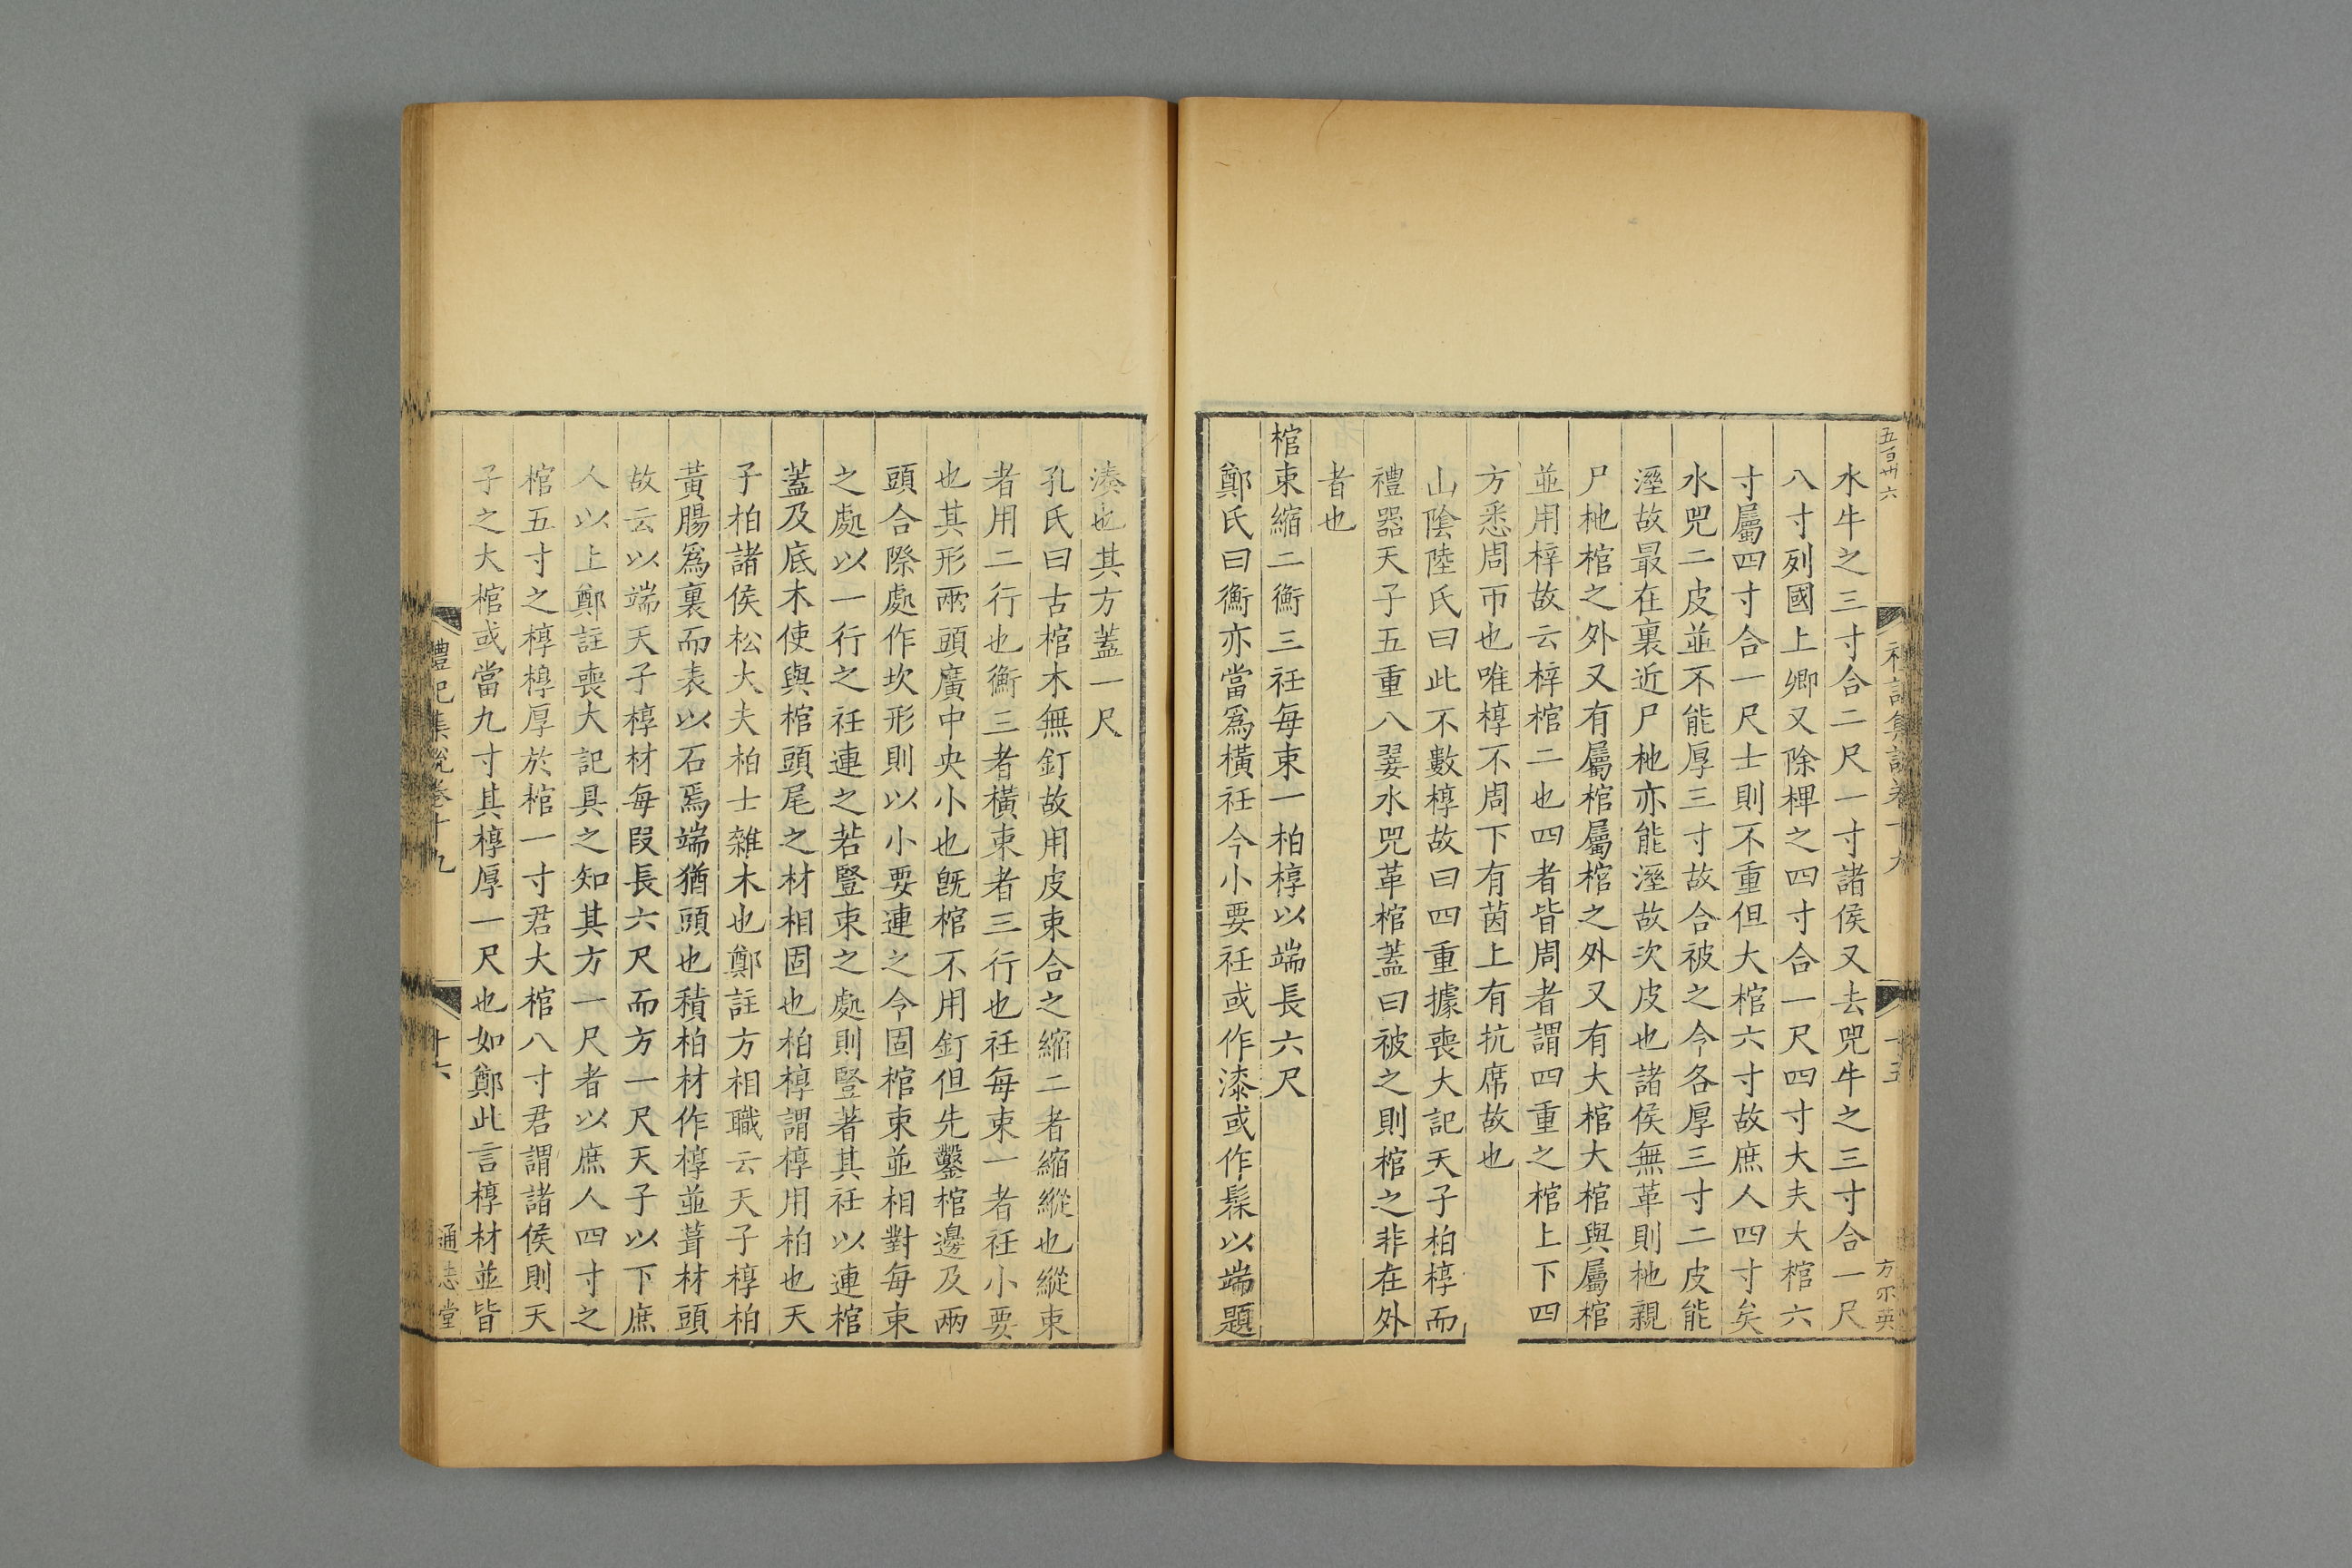 五百卅六
水牛之三寸合二尺一寸諸侯又去兕牛之三寸合一尺
八寸列國上卿又除椑之四寸合一尺四寸大夫大棺六
寸屬四寸合一尺士則不重但大棺六寸故庶人四寸矣
水兕二皮並不能厚三寸故合被之今各厚三寸二皮能
溼故最在裏近尸杝亦能溼故次皮也諸侯無革則杝親
尸杝棺之外又有屬棺屬棺之外又有大棺大棺與屬棺
並用梓故云梓棺二也四者皆周者謂四重之棺上下四
方悉周帀也唯椁不周下有茵上有抗席故也
山陰陸氏曰此不數椁故曰四重據喪大記天子柏椁而
禮器天子五重八翣水兕革棺蓋曰被之則棺之非在外
者也
棺束縮二衡三衽每束一柏椁以端長六尺
鄭氏曰衡亦當爲橫衽今小要衽或作漆或作髹以端題
湊也其方蓋一尺
孔氏曰古棺木無釘故用皮束合之縮二者縮縱也縱束
者用二行也衡三者橫束者三行也衽每束一者衽小要
也其形兩頭廣中央小也旣棺不用釘但先鑿棺邊及兩
頭合際處作坎形則以小要連之令固棺束並相對每束
之處以一行之衽連之若豎束之處則豎著其衽以連棺
蓋及底木使與棺頭尾之材相固也柏椁謂椁用柏也天
子柏諸侯松大夫柏士雜木也鄭註方相職云天子椁柏
黃腸爲裏而表以石焉端猶頭也積柏材作椁並葺材頭
故云以端天子椁材每段長六尺而方一尺天子以下庶
人以上鄭註喪大記具之知其方一尺者以庶人四寸之
棺五寸之椁椁厚於棺一寸君大棺八寸君謂諸侯則天
子之大棺或當九寸其椁厚一尺也如鄭此言椁材並皆
禮記集說卷十九
十六
通志堂